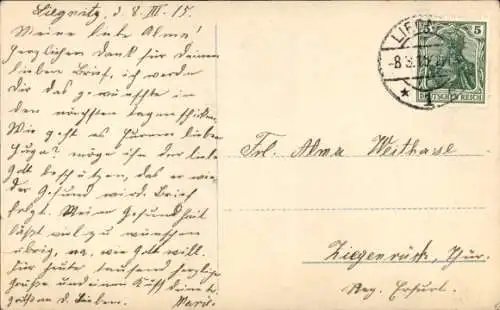 Liegnitz, d. 8. III. 15.
Meine liebe Alma!
Herzlichen Dank für Deinen
lieben Brief, ich werde
Dir das gewünschte in
den nächsten tagen schicken.
Wie geht es Eurem lieben
Hugo? möge ihn der liebe
Gott beschützen, das er wie-
der Gesund wird. Brief
folgt. Meine Gesundheit
läßt viel zu wünschen
übrig, na, wie Gott will.
Für heute tausend herzliche
Grüße und einen Kuß deine
grüß an d. Lieben.
LIEG
-8.3.15
5
DEUTSCHES REICH
* 1
Frl. Alma Weithase
Ziegenrück, Thür.
Reg. Erfurt.